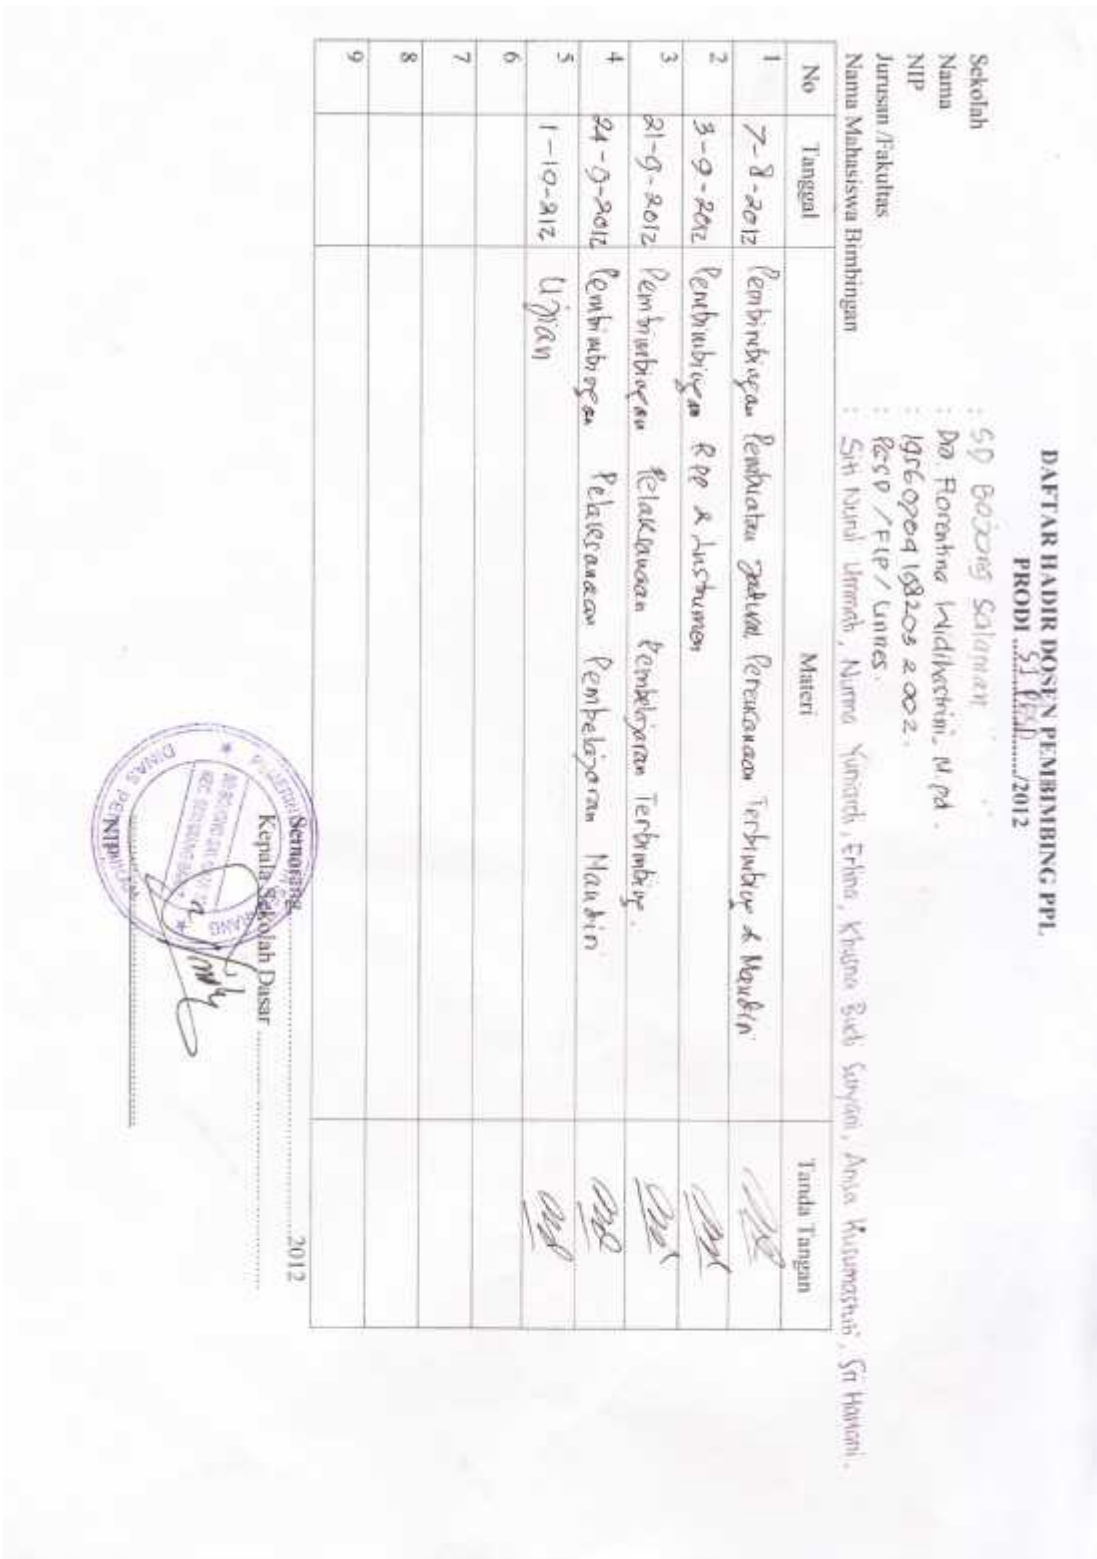 DAFTAR HADIR DOSEN PEMBIMBING PPL
PRODI ...S1 PGSD......./2012
Sekolah : SD Bojong Salaman
Nama : Dra. Florentina Widihastrini, M.pd.
NIP : 19560704 198203 2 002.
Jurusan /Fakultas : PGSD / FIP / Unnes.
Nama Mahasiswa Bimbingan : Siti Nurul Ummah, Nurma Yuniardi, Erlina, Khusna Budi Suryani, Anisa Kusumastuti, Sri Haryani.
No Tanggal Materi Tanda Tangan
1 7-8-2012 Pembimbingan Pembuatan jadwal Perencanaan Terbimbing & Mandiri
2 3-9-2012 Pembimbingan RPP & Instrumen
3 21-9-2012 Pembimbingan Pelaksanaan Pembelajaran Terbimbing.
4 24-9-2012 Pembimbingan Pelaksanaan Pembelajaran Mandiri
5 1-10-212 Ujian
6
7
8
9
Semarang, ..........2012
Kepala Sekolah Dasar ..........
NIP
DINAS PE